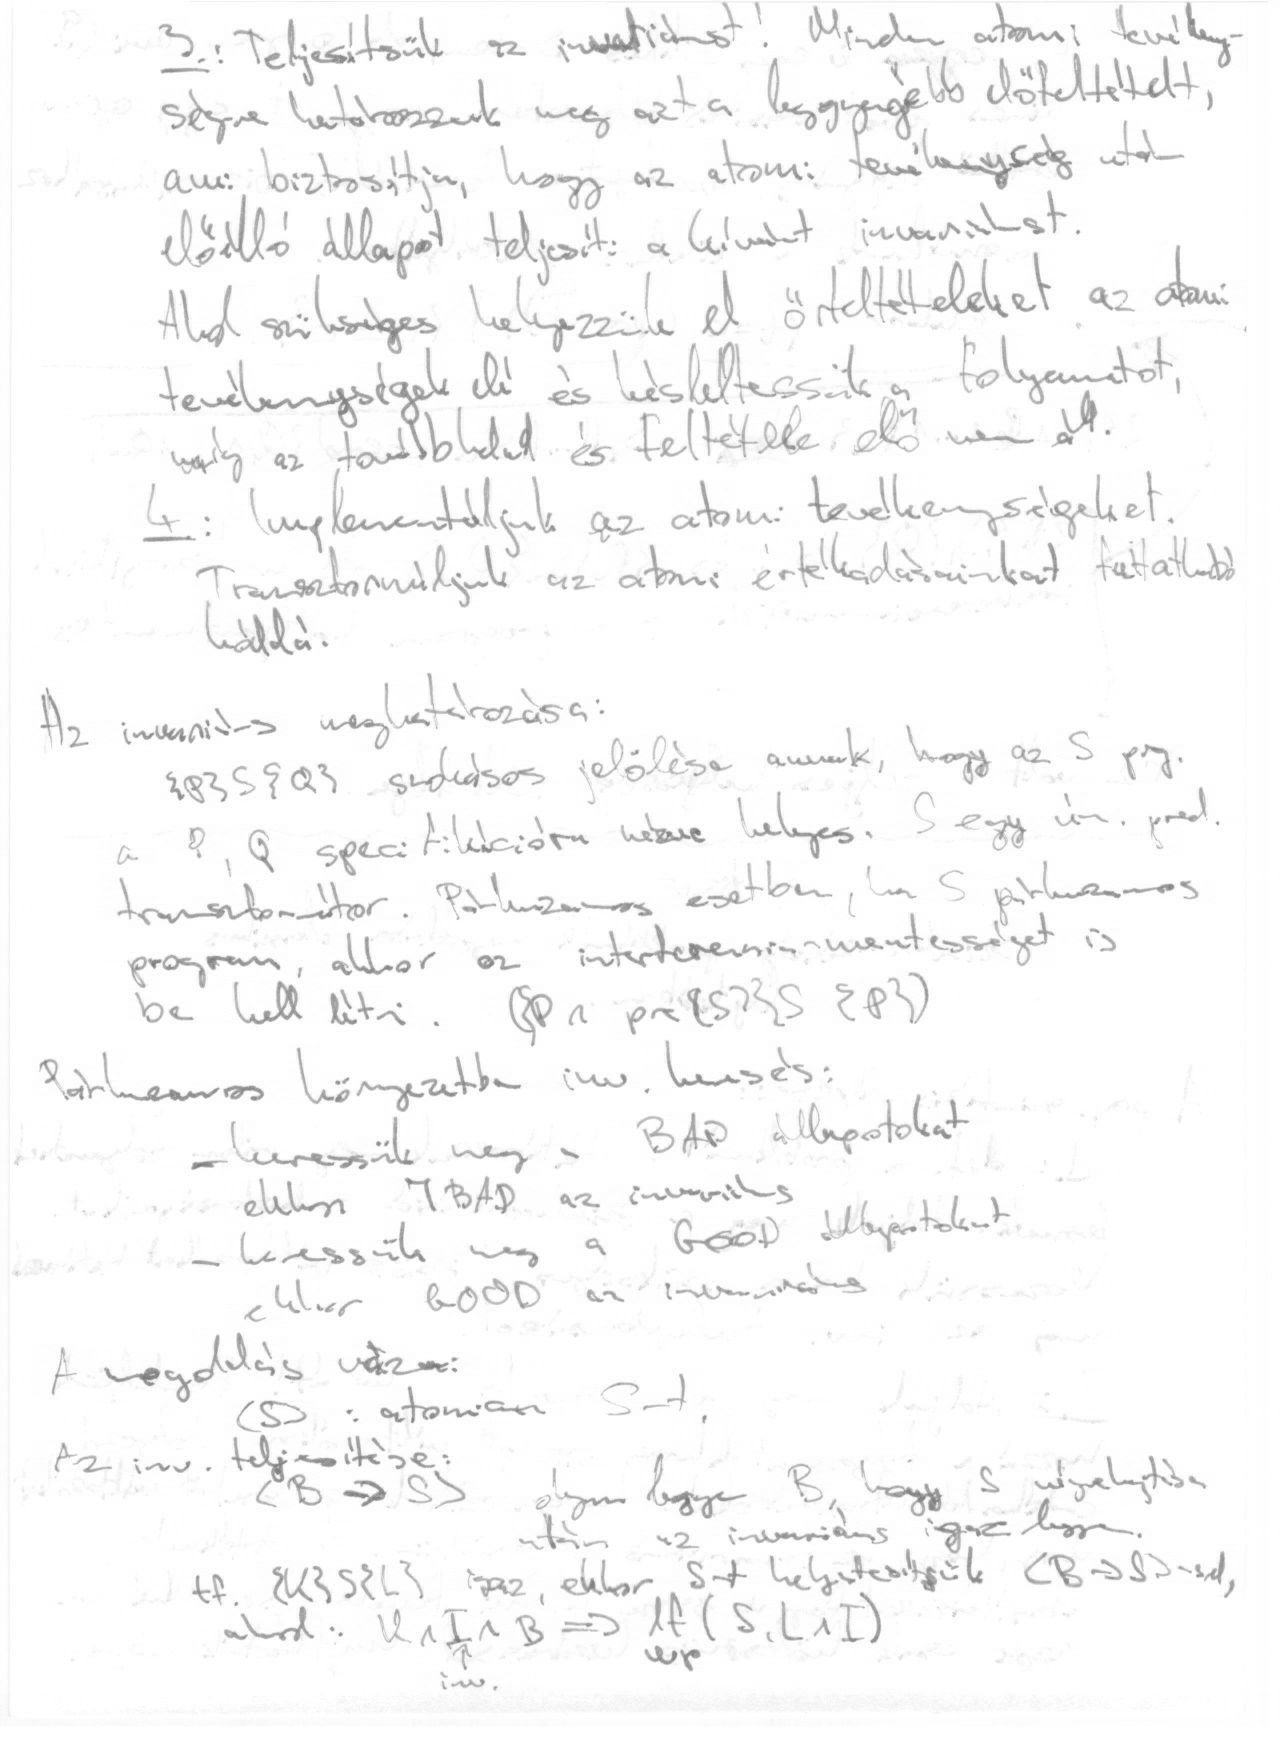 3.: Teljesítsük az invariánst! Minden atomi tevékeny-
ségre határozzuk meg azt a leggyengébb előfeltételt,
ami biztosítja, hogy az atomi tevékenység után
előálló állapot teljesíti a kívánt invariánst.
Ahol szükséges helyezzük el őrfeltételeket az atomi
tevékenységek elé és késleltessük a folyamatot,
míg az továbbhalad és feltétele elő nem áll.
4.: Implementáljuk az atomi tevékenységeket.
Transzformáljuk az atomi értékadásainkat futtatható
kóddá.
Az invariáns meghatározása:
{P}S{Q} szokásos jelölése annak, hogy az S prg.
a P, Q specifikációra nézve helyes. S egy ún. pred.
transzformátor. Párhuzamos esetben, ha S párhuzamos
program, akkor az interferencia-mentességet is
be kell látni. ({P ∧ pre{S}}S {P})
Párhuzamos környezetben inv. keresés:
- keressük meg a BAD állapotokat
ekkor ¬BAD az invariáns
- keressük meg a GOOD állapotokat
ekkor GOOD az invariáns
A megoldás váza:
<S> : atomian S-t.
Az inv. teljesítése:
<B → S> olyan legyen B, hogy S végrehajtása
után az invariáns igaz legyen.
tf. {K}S{L} igaz, ekkor S-t helyettesítjük <B→S>-sel,
ahol: K ∧ I ∧ B => lf (S, L ∧ I)
↑ wp
inv.